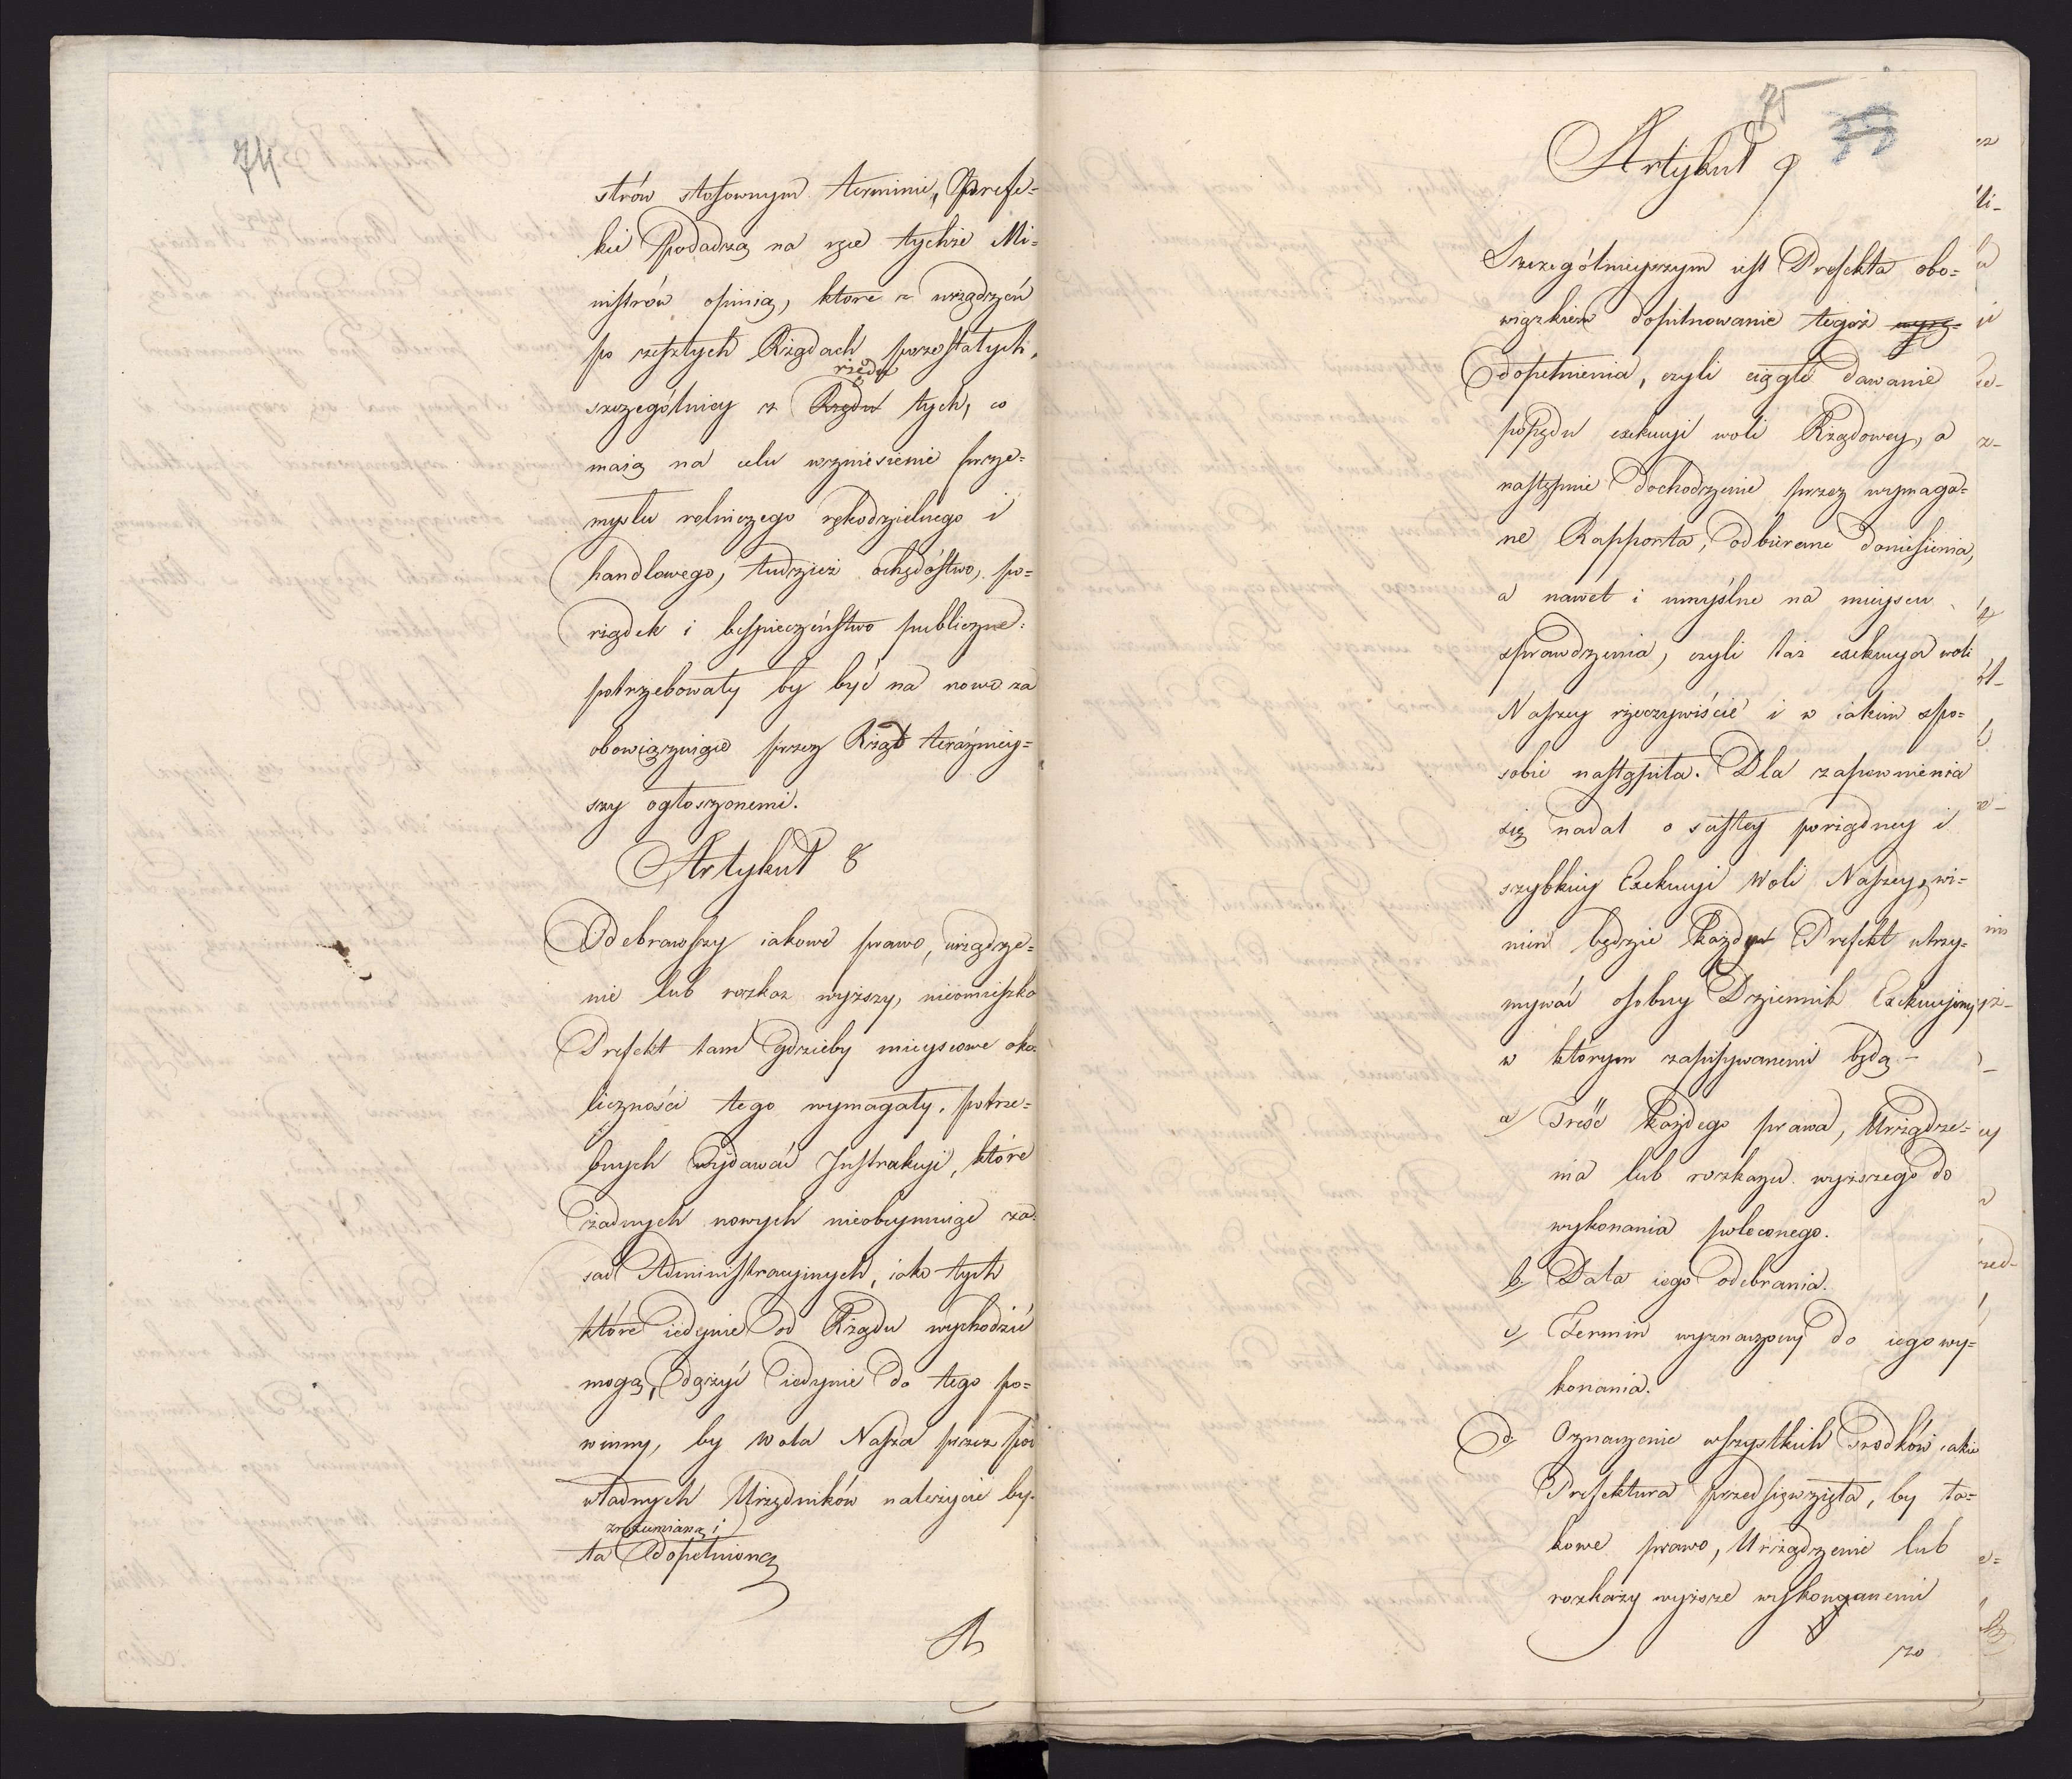 74
strów stosownym terminie, Prefe=
kci Podadzą na ręce tychże Mi=
nistrów opinią, które z urządzeń
po zeszłych Rządach pozostałych,
rzędu
szczególniey z Rzędu tych, co
maią na celu wzniesienie prze=
mysłu rolniczego rękodzielnego i
handlowego, tudzież ochędóstwo, po=
rządek i bespieczeństwo publiczne:
potrzebowały by być na nowo za
obowiązuiące przez Rząd teraźniey=
szy ogłoszonemi.
Artykuł 8
Odebrawszy iakowe prawo, urządze=
nie lub rozkaz wyższy, nieomieszka
Prefekt tam gdzieby mieyscowe oko=
liczności tego wymagały, potrze=
bnych wydawać Instrukcyi, które
żadnych nowych nieobeymuiąc za=
sad Administracyinych, iako tych
które iedynie od Rządu wychodzić
mogą, dążyć iedynie do tego po=
winny, by Wola Nasza przez pod
władnych Urzędników należycie by=
zrozumianą i
ła dopełnioną
Ar
75
Artykuł 9
Szczególnieyszym iest Prefekta obo=
wiązkiem dopilnowanie tegoż
dopełnienia, czyli ciągłe dawanie
popędu exekucyi woli Rządowey, a
następnie dochodzenie przez wymaga=
ne Rapporta, odbierane doniesienia,
a nawet i umyślne na mieyscu
sprawdzenia, czyli taż exekucya woli
Naszey rzeczywiście i w iakim spo=
sobie nastąpiła. Dla zapewnienia
się nadal o ścisłey porządney i
szybkiey Exekucyi Woli Naszey, wi=
nien będzie każdy Prefekt utrzy=
mywać osobny Dziennik Exekucyiny
w którym zapisywanemi będą –
a/ Treść każdego prawa, Urządze=
nia lub rozkazu wyższego do
wykonania poleconego.
b/ Data iego odebrania.
c/ Termin wyznaczony do iego wy=
konania.
d/ Oznaczenie wszystkich srodków iakie
Prefektura przedsięwzięła, by ta=
kowe prawo, Urządzenie lub
rozkazy wyższe wykonanemi
zo